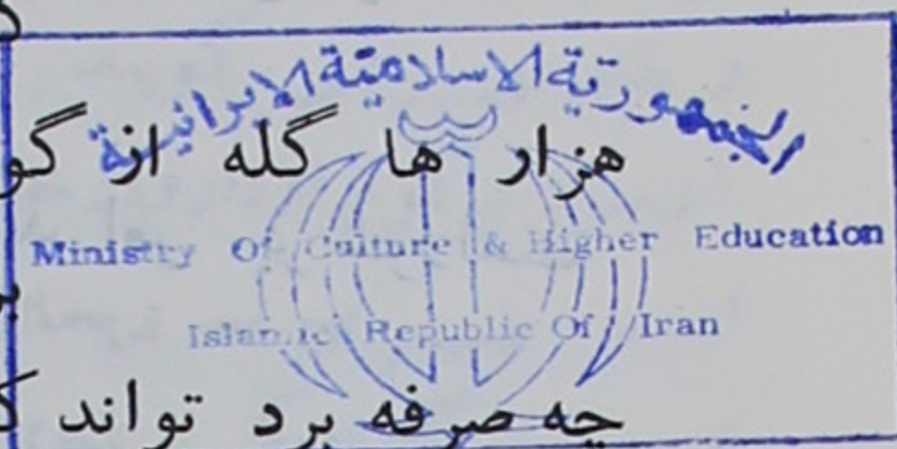 الجمهورية الاسلامية الايرانية
هزار ها گله از گو
Ministry Of Culture & Higher Education
Islamic Republic Of Iran
چه صرفه برد تواند ک